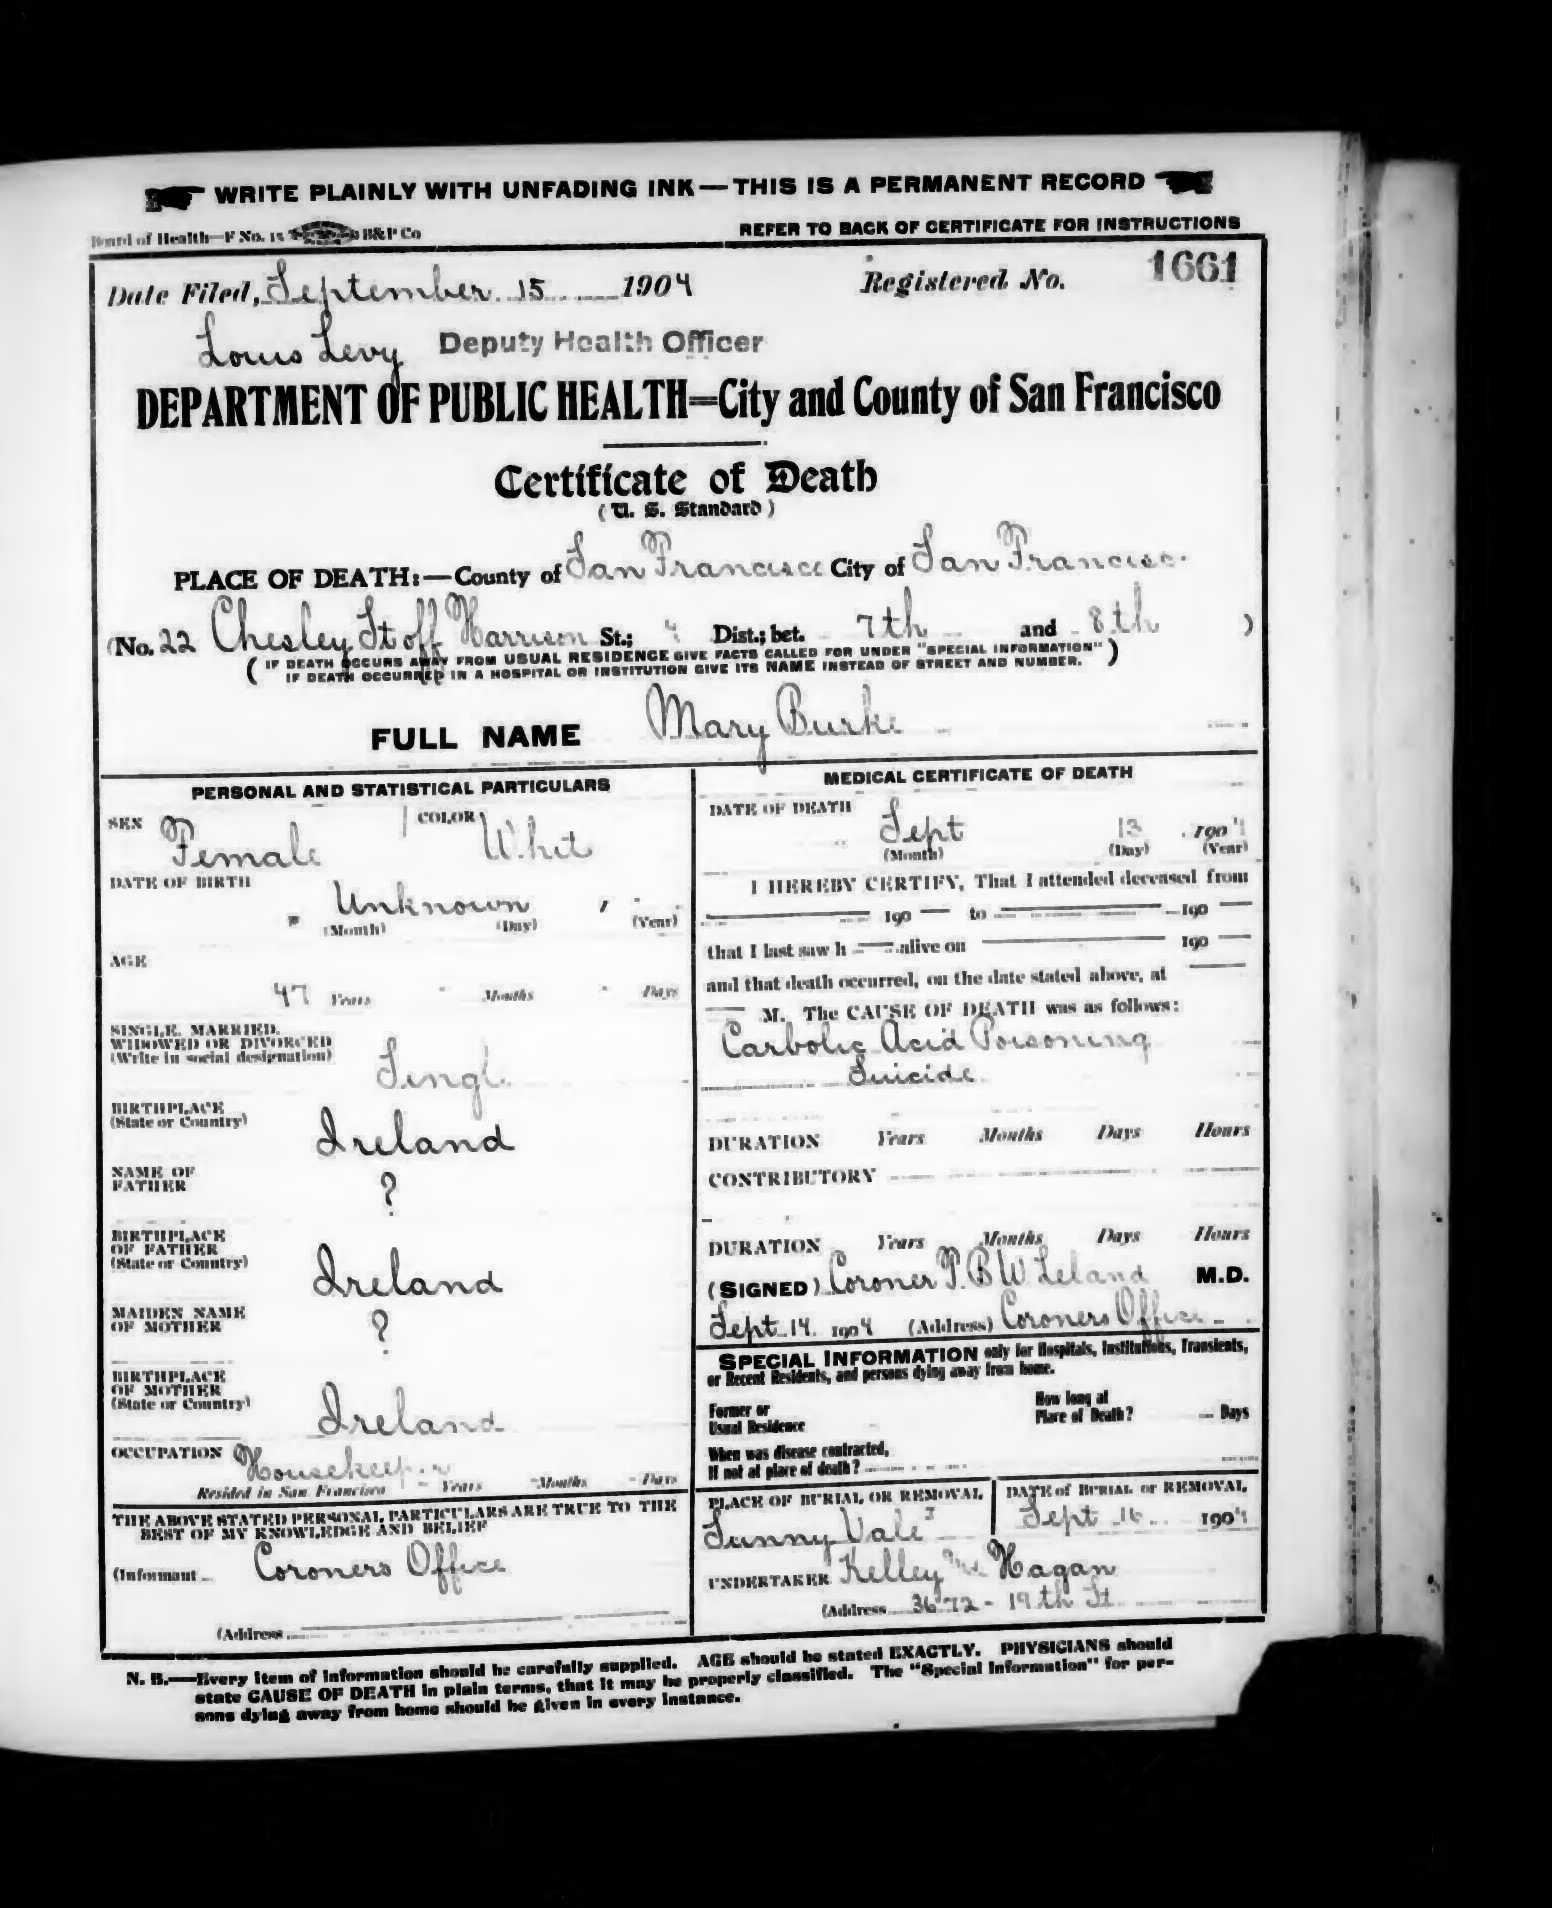 WRITE PLAINLY WITH UNFADING INK—THIS IS A PERMANENT RECORD
Board of Health—F No. 15 B&P Co
REFER TO BACK OF CERTIFICATE FOR INSTRUCTIONS
Date Filed, September 15 1904 Registered No. 1661
Louis Levy Deputy Health Officer
DEPARTMENT OF PUBLIC HEALTH=City and County of San Francisco
Certificate of Death
(U. S. Standard)
PLACE OF DEATH:—County of San Francisco City of San Francisco
(No. 22 Chesley St off Harrison St.; 4 Dist.; bet. 7th and 8th )
( IF DEATH OCCURS AWAY FROM USUAL RESIDENCE GIVE FACTS CALLED FOR UNDER "SPECIAL INFORMATION" )
IF DEATH OCCURRED IN A HOSPITAL OR INSTITUTION GIVE ITS NAME INSTEAD OF STREET AND NUMBER.
FULL NAME Mary Burke
PERSONAL AND STATISTICAL PARTICULARS
SEX Female COLOR White
DATE OF BIRTH
Unknown
(Month) (Day) (Year)
AGE
47 Years Months Days
SINGLE, MARRIED,
WIDOWED OR DIVORCED
(Write in social designation)
Single
BIRTHPLACE
(State or Country)
Ireland
NAME OF
FATHER
?
BIRTHPLACE
OF FATHER
(State or Country)
Ireland
MAIDEN NAME
OF MOTHER
?
BIRTHPLACE
OF MOTHER
(State or Country)
Ireland
OCCUPATION Housekeeper
Resided in San Francisco Years Months Days
THE ABOVE STATED PERSONAL PARTICULARS ARE TRUE TO THE
BEST OF MY KNOWLEDGE AND BELIEF
(Informant Coroners Office
(Address
MEDICAL CERTIFICATE OF DEATH
DATE OF DEATH
Sept 13 1904
(Month) (Day) (Year)
I HEREBY CERTIFY, That I attended deceased from
190 to 190
that I last saw h alive on 190
and that death occurred, on the date stated above, at
M. The CAUSE OF DEATH was as follows:
Carbolic Acid Poisoning
Suicide
DURATION Years Months Days Hours
CONTRIBUTORY
DURATION Years Months Days Hours
(SIGNED) Coroner T. B W Leland M.D.
Sept 14 1904 (Address) Coroners Office
SPECIAL INFORMATION only for Hospitals, Institutions, Transients,
or Recent Residents, and persons dying away from home.
Former or
Usual Residence
How long at
Place of Death? Days
When was disease contracted,
If not at place of death?
PLACE OF BURIAL OR REMOVAL
Sunny Vale
DATE of BURIAL or REMOVAL
Sept 16 1904
UNDERTAKER Kelley Hagan
(Address 3672 - 19th St
N. B.—Every item of information should be carefully supplied. AGE should be stated EXACTLY. PHYSICIANS should
state CAUSE OF DEATH in plain terms, that it may be properly classified. The "Special Information" for per-
sons dying away from home should be given in every instance.